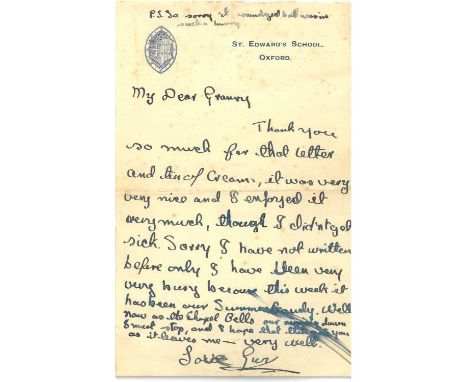 P.S. So sorry it smudged but was in
such a hurry
ST. EDWARD'S SCHOOL,
OXFORD.
My Dear Granny
Thank you
so much for that letter
and tin of Cream, it was very
very nice and I enjoyed it
very much, though I didn't get
sick. Sorry I have not written
before only I have been very
very busy because this week it
has been our Summer. Well
now as the Chapel Bells our down
I must stop, and I hope that this you
as it leaves me — very well.
Love Guy